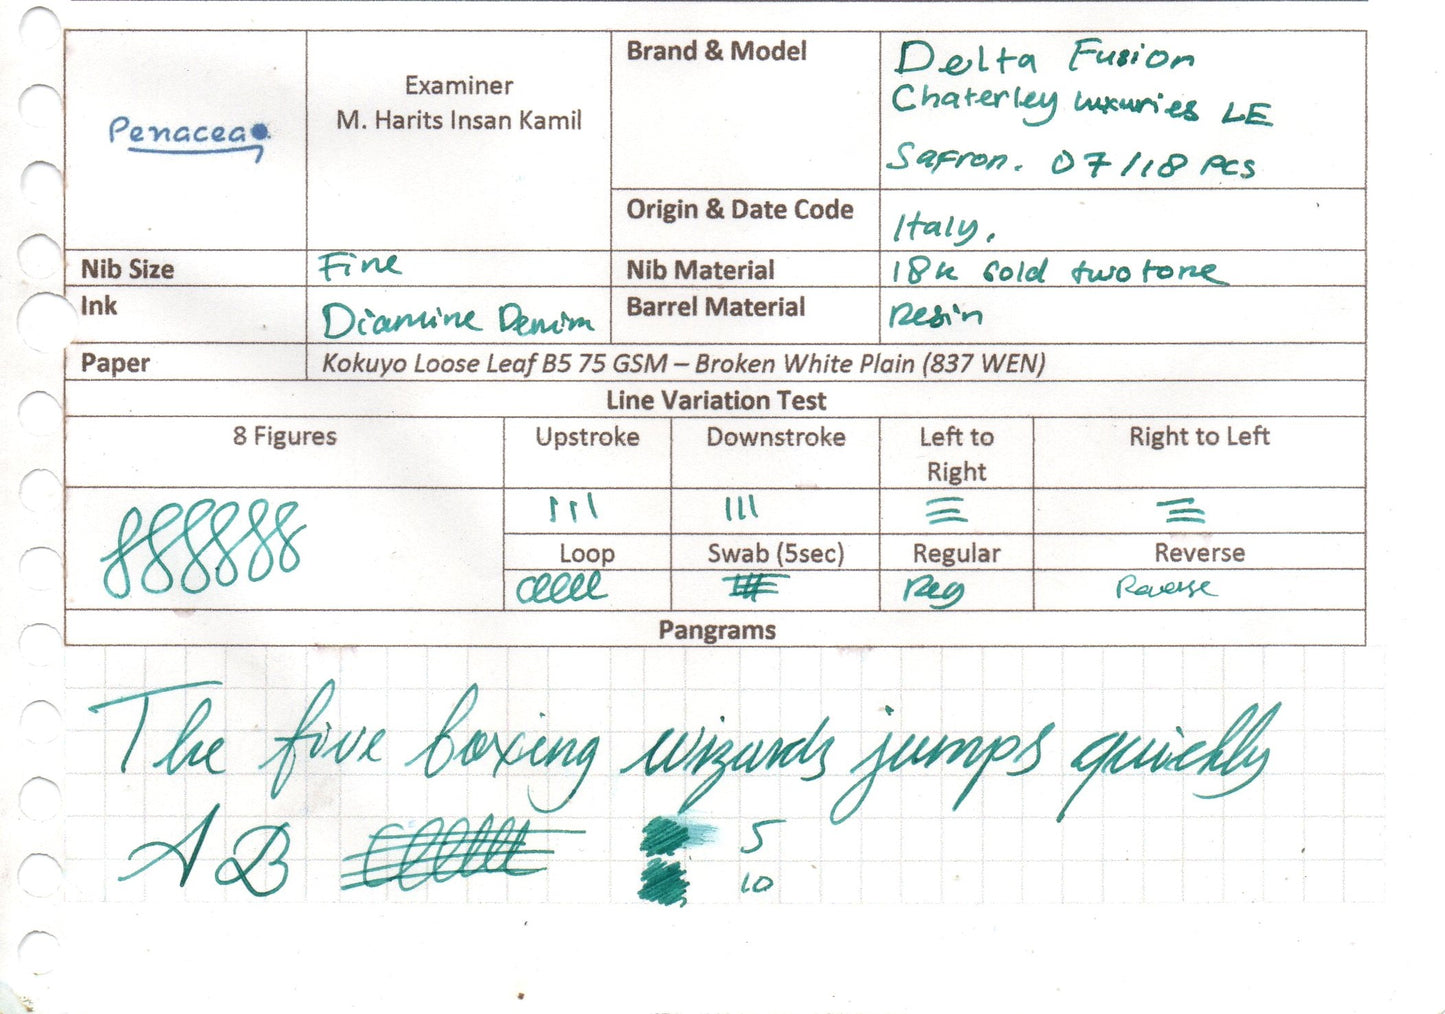 Penacea
Examiner
M. Harits Insan Kamil
Brand & Model
Delta Fusion
Chaterley Luxuries LE
Safron. 07/18 Pcs
Origin & Date Code
Italy.
Nib Size
Fine
Nib Material
18k Gold two tone
Ink
Diamine Denim
Barrel Material
Resin
Paper
Kokuyo Loose Leaf B5 75 GSM – Broken White Plain (837 WEN)
Line Variation Test
8 Figures
Upstroke
Downstroke
Left to
Right
Right to Left
Loop
Swab (5sec)
Regular
Reverse
Reg
Reverse
Pangrams
The five boxing wizards jumps quickly
A B
5
10